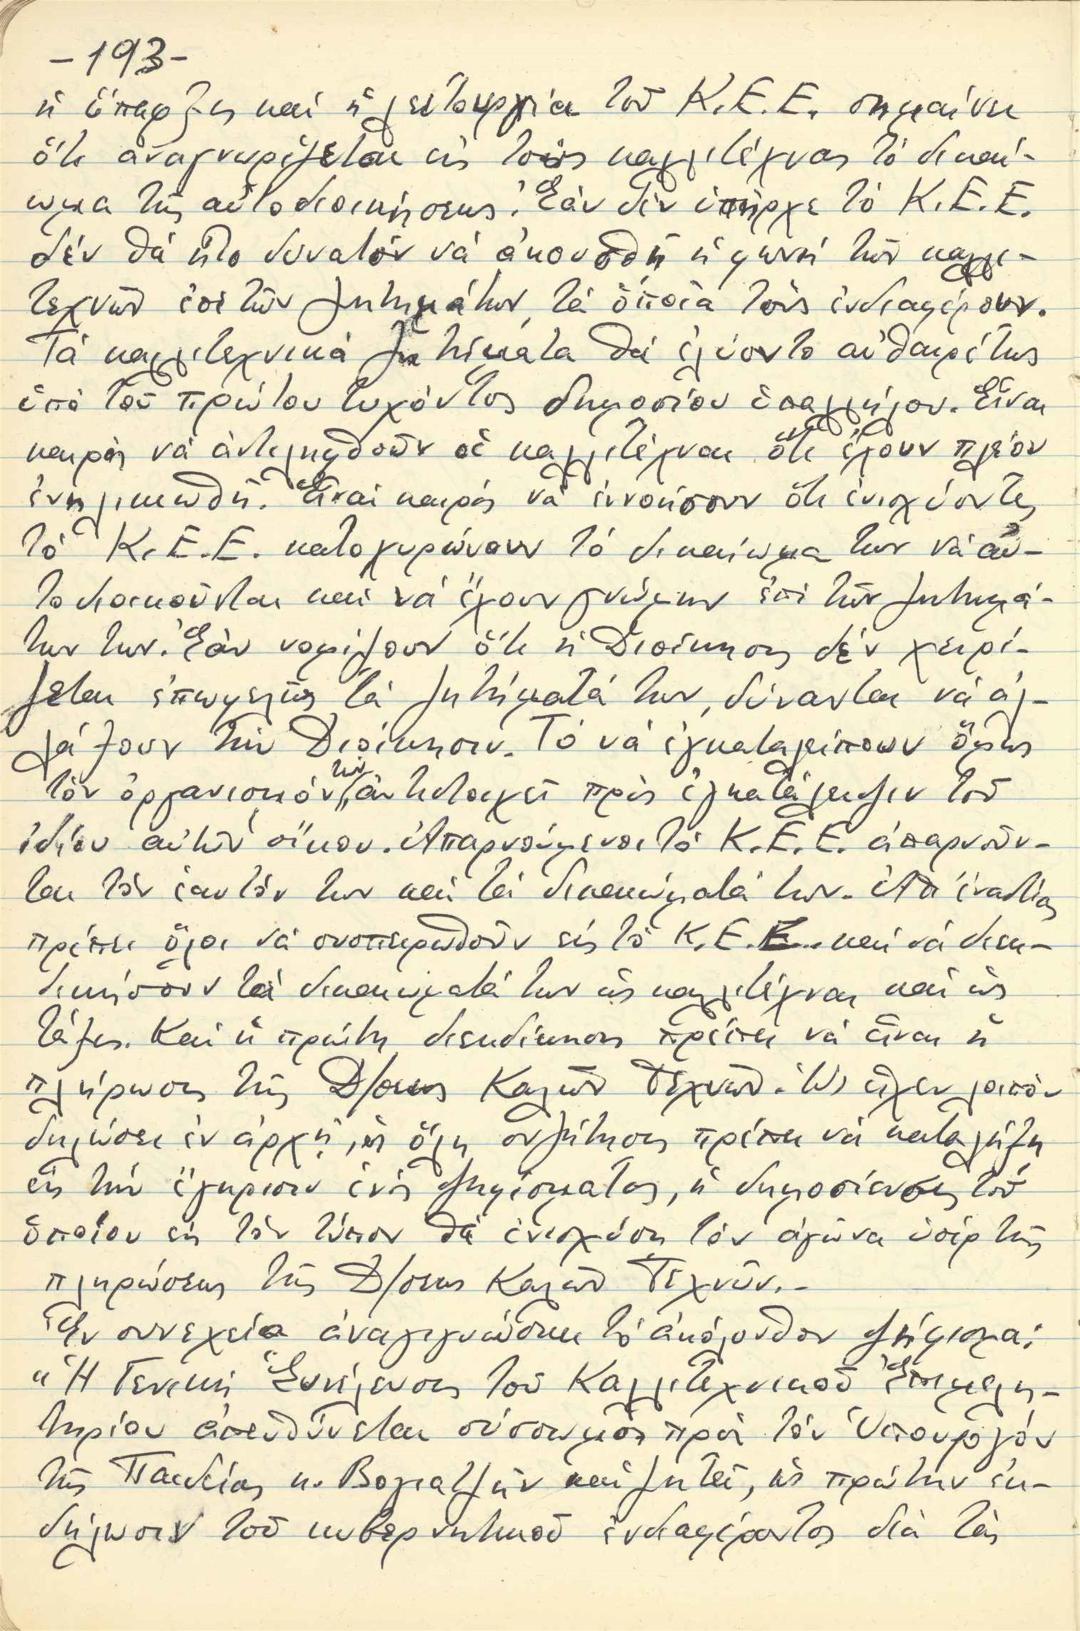 -193-
ἡ ὕπαρξις καί ἡ λειτουργία τοῦ Κ.Ε.Ε. σημαίνει
ὅτι ἀναγνωρίζεται εἰς τούς καλλιτέχνας τό δικαί-
ωμα τῆς αὐτοδιοικήσεως. Ἐάν δέν ὑπῆρχε τό Κ.Ε.Ε.
δέν θά ἦτο δυνατόν νά ἀκουσθῇ ἡ φωνή τῶν καλλι-
τεχνῶν ἐπί τῶν ζητημάτων, τά ὁποῖα τούς ἐνδιαφέρουν.
Τά καλλιτεχνικά ζητήματα θά ἐλύοντο αὐθαιρέτως
ὑπό τοῦ πρώτου τυχόντος δημοσίου ὑπαλλήλου. Εἶναι
καιρός νά ἀντιληφθοῦν οἱ καλλιτέχναι ὅτι ἔχουν πλέον
ἐνηλικιωθῆ. Εἶναι καιρός νά ἐννοήσουν ὅτι ἐνισχύοντες
τό Κ.Ε.Ε. κατοχυρώνουν τό δικαίωμά των νά αὐ-
τοδιοικοῦνται καί νά ἔχουν γνώμην ἐπί τῶν ζητημά-
των των. Ἐάν νομίζουν ὅτι ἡ Διοίκησις δέν χειρί-
ζεται ἐπωφελῶς τά ζητήματά των, δύνανται νά ἀλ-
λάξουν τήν Διοίκησιν. Τό νά ἐγκαταλείπουν ὅμως
τόν ὀργανισμόν των, ἀντιστοιχεῖ πρός ἐγκατάλειψιν τοῦ
ἰδίου αὐτῶν οἴκου. Ἀπαρνούμενοι τό Κ.Ε.Ε. ἀπαρνοῦν-
ται τόν ἑαυτόν των καί τά δικαιώματά των. Ἀπ' ἐναντίας
πρέπει ὅλοι νά συσπειρωθοῦν εἰς τό Κ.Ε.Ε. καί νά διεκ-
δικήσουν τά δικαιώματά των ὡς καλλιτέχναι καί ὡς
τάξις. Καί ἡ πρώτη διεκδίκησις πρέπει νά εἶναι ἡ
πλήρωσις τῆς Δ/σεως Καλῶν Τεχνῶν. Ὡς εἶχεν λοιπόν
δηλώσει ἐν ἀρχῇ, ἡ ὅλη συζήτησις πρέπει νά καταλήξῃ
εἰς τήν ἔγκρισιν ἑνός ψηφίσματος, ἡ δημοσίευσις τοῦ
ὁποίου εἰς τόν τύπον θά ἐνισχύσῃ τόν ἀγῶνα ὑπέρ τῆς
πληρώσεως τῆς Δ/σεως Καλῶν Τεχνῶν.-
Ἐν συνεχείᾳ ἀναγιγνώσκει τό ἀκόλουθον ψήφισμα:
"Ἡ Γενική Συνέλευσις τοῦ Καλλιτεχνικοῦ Ἐπιμελη-
τηρίου ἀπευθύνεται σύσσωμος πρός τόν Ὑπουργόν
τῆς Παιδείας κ. Βογιατζῆν καί ζητεῖ, ὡς πρώτην ἐκ-
δήλωσιν τοῦ κυβερνητικοῦ ἐνδιαφέροντος διά τάς